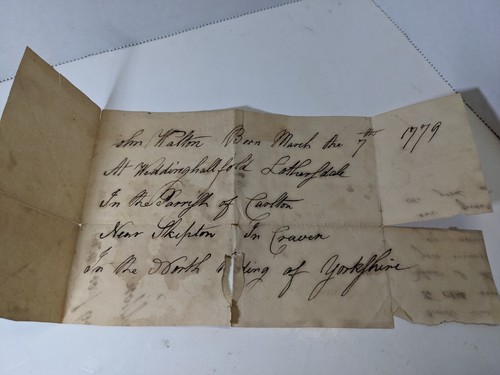 ohn Walton Born March the 7th 1779
At Weddinghallfold Lothersdale
In the Parrish of Carlton
Near Skipton In Craven
In the North ding of Yorkshire